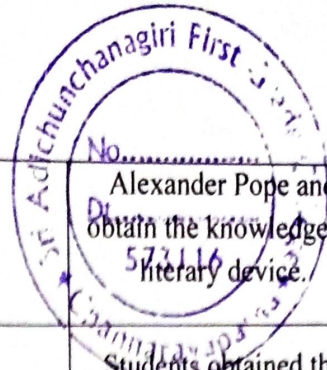 Sri Adichunchanagiri First
No..................
Dt..................
573116
Alexander Pope and
obtain the knowledge
literary device.
Students obtained th